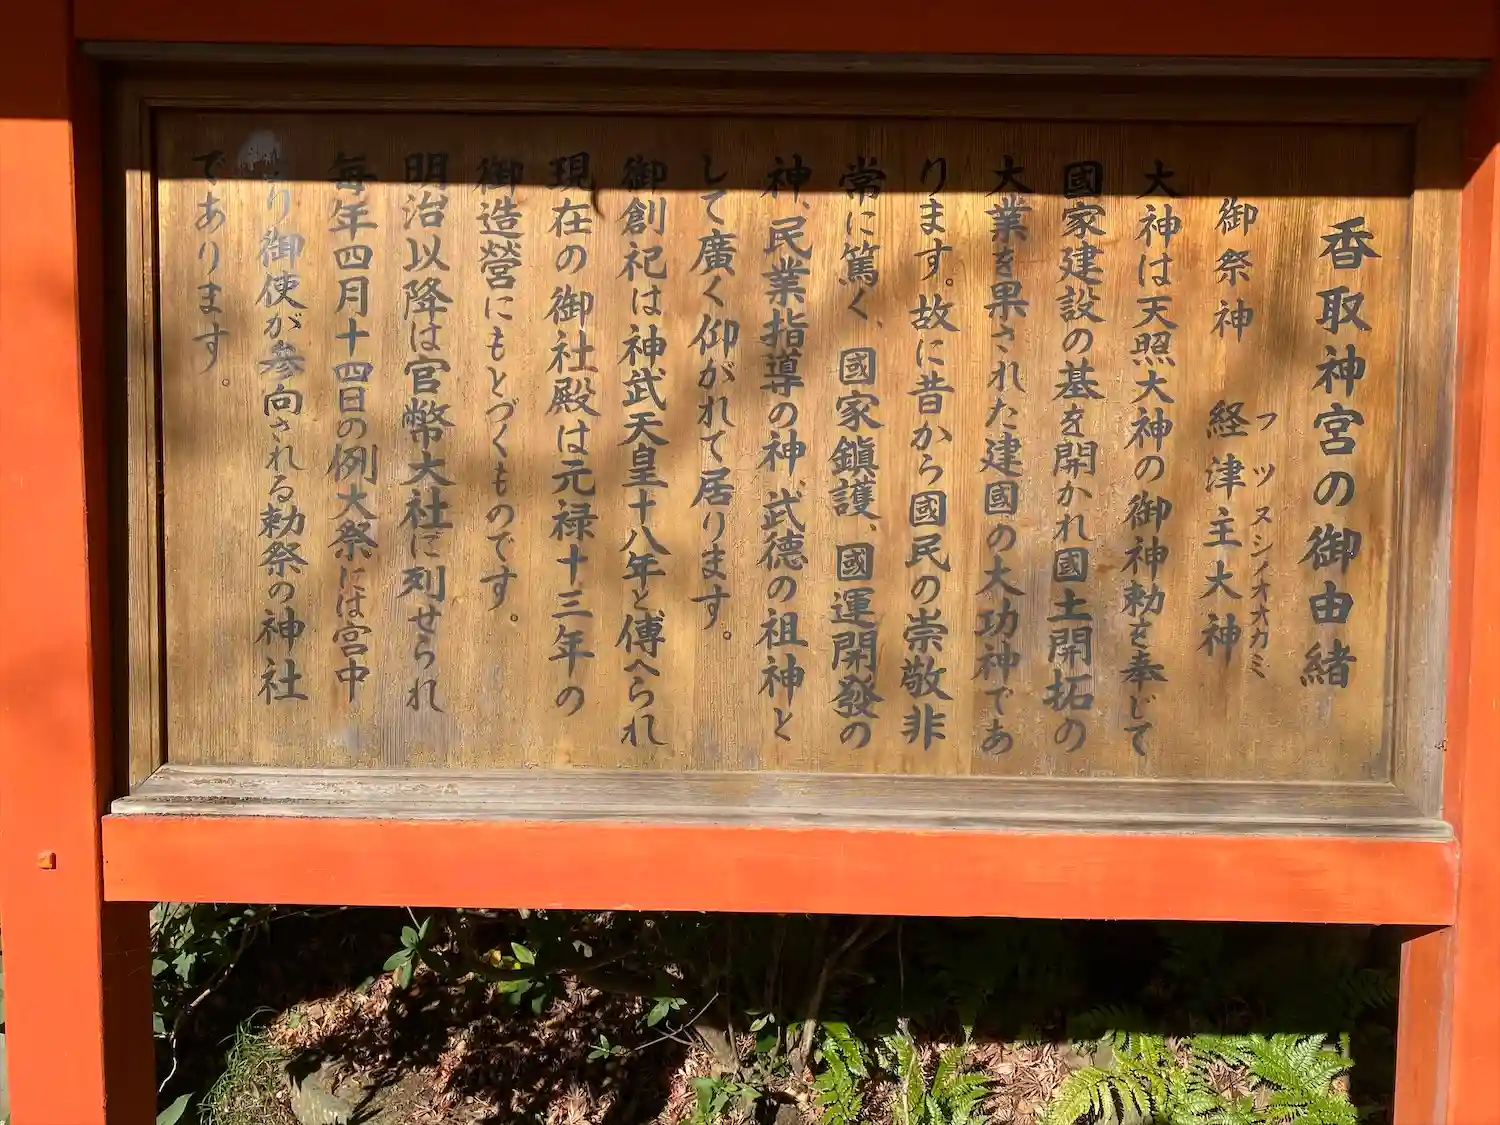 香取神宮の御由緒
御祭神 経津主大神
フツヌシノオオカミ
大神は天照大神の御神勅を奉じて
國家建設の基を開かれ國土開拓の
大業を果された建國の大功神であ
ります。故に昔から國民の崇敬非
常に篤く、國家鎮護、國運開發の
神、民業指導の神、武徳の祖神と
して廣く仰がれて居ります。
御創祀は神武天皇十八年と傅へられ
現在の御社殿は元禄十三年の
御造營にもとづくものです。
明治以降は官幣大社に列せられ
毎年四月十四日の例大祭には宮中
より御使が參向される勅祭の神社
であります。